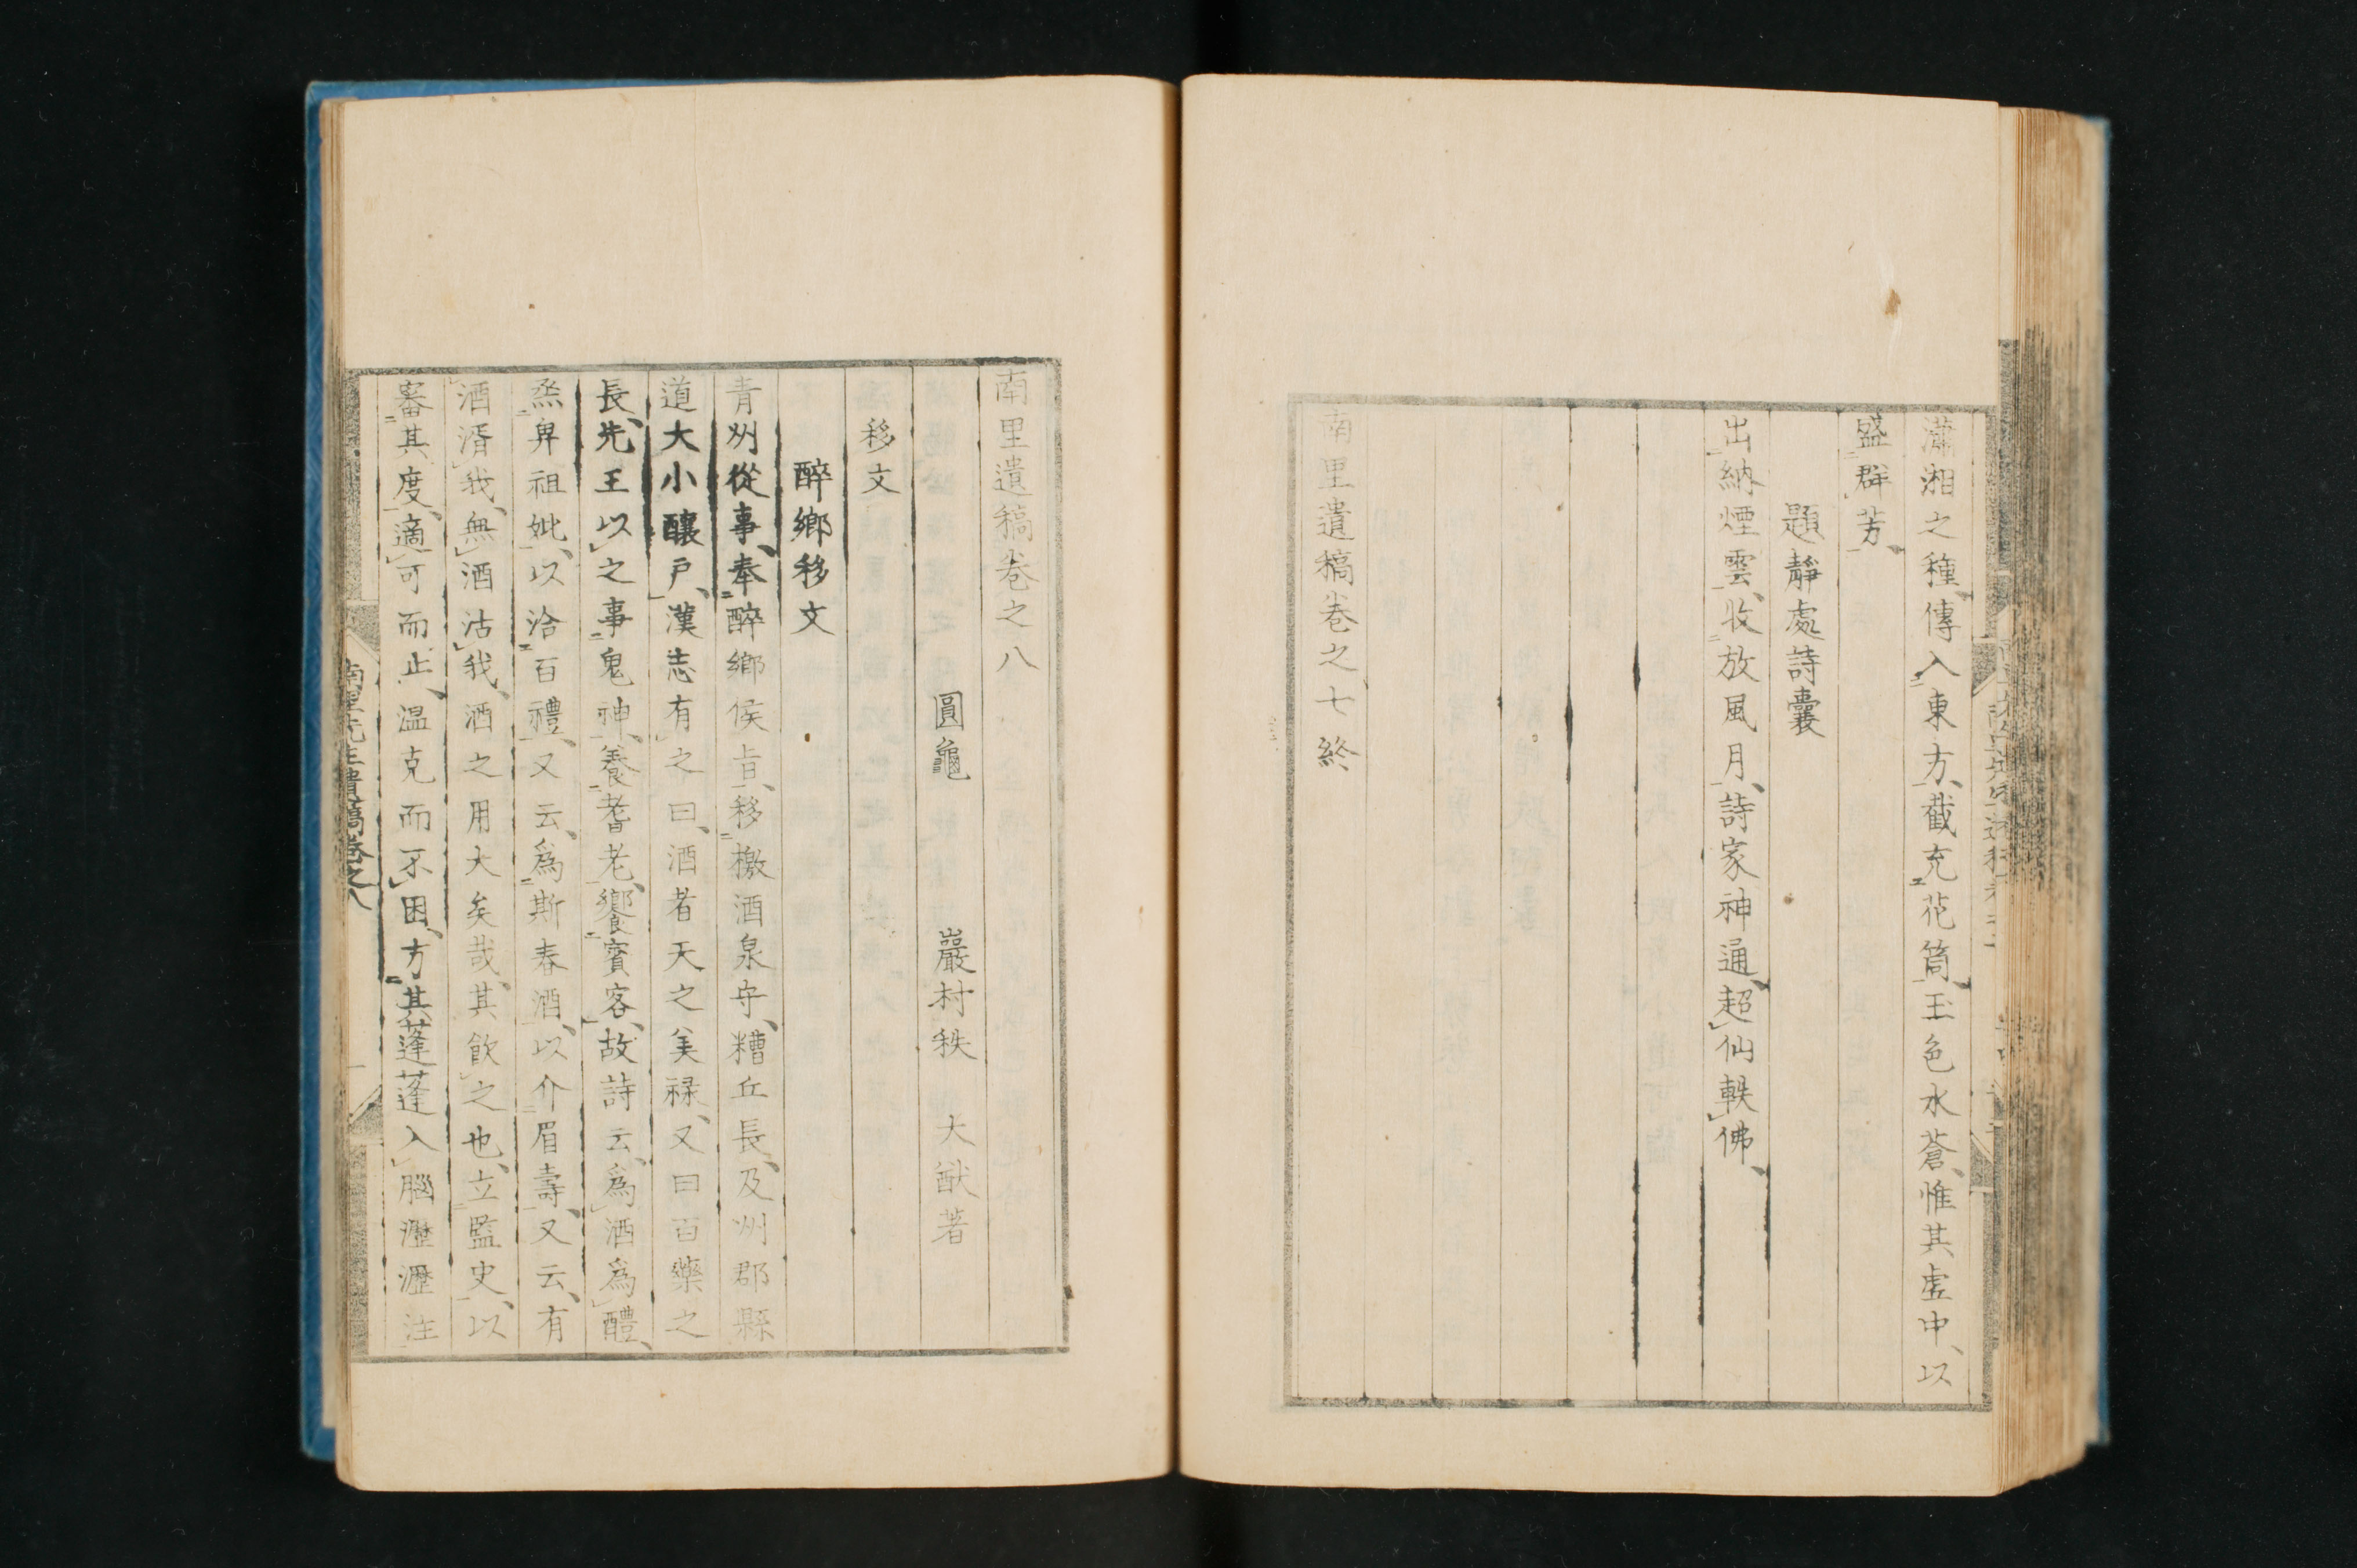 瀟湘之種、傳入東方、截充花筒、玉色水蒼、惟其虛中、以
盛群芳、
題靜處詩囊
出納煙雲、收放風月、詩家神通、超仙軼佛、
南里遺稿卷之七終
南里遺稿卷之八
圓龜　巖村秩　大猷著
移文
醉鄉移文
青州從事、奉醉鄉侯旨、移檄酒泉守、糟丘長、及州郡縣
道大小釀戶、漢志有之曰、酒者天之美祿、又曰百藥之
長、先王以之事鬼神、養耆老、饗賓客、故詩云、爲酒爲醴、
烝畀祖妣、以洽百禮、又云、爲斯春酒、以介眉壽、又云、有
酒湑我、無酒沽我、酒之用大矣哉、其飮之也、立監史、以
審其度、適可而止、温克而不困、方其蓬蓬入腦瀝瀝注
南里先生遺稿卷之八